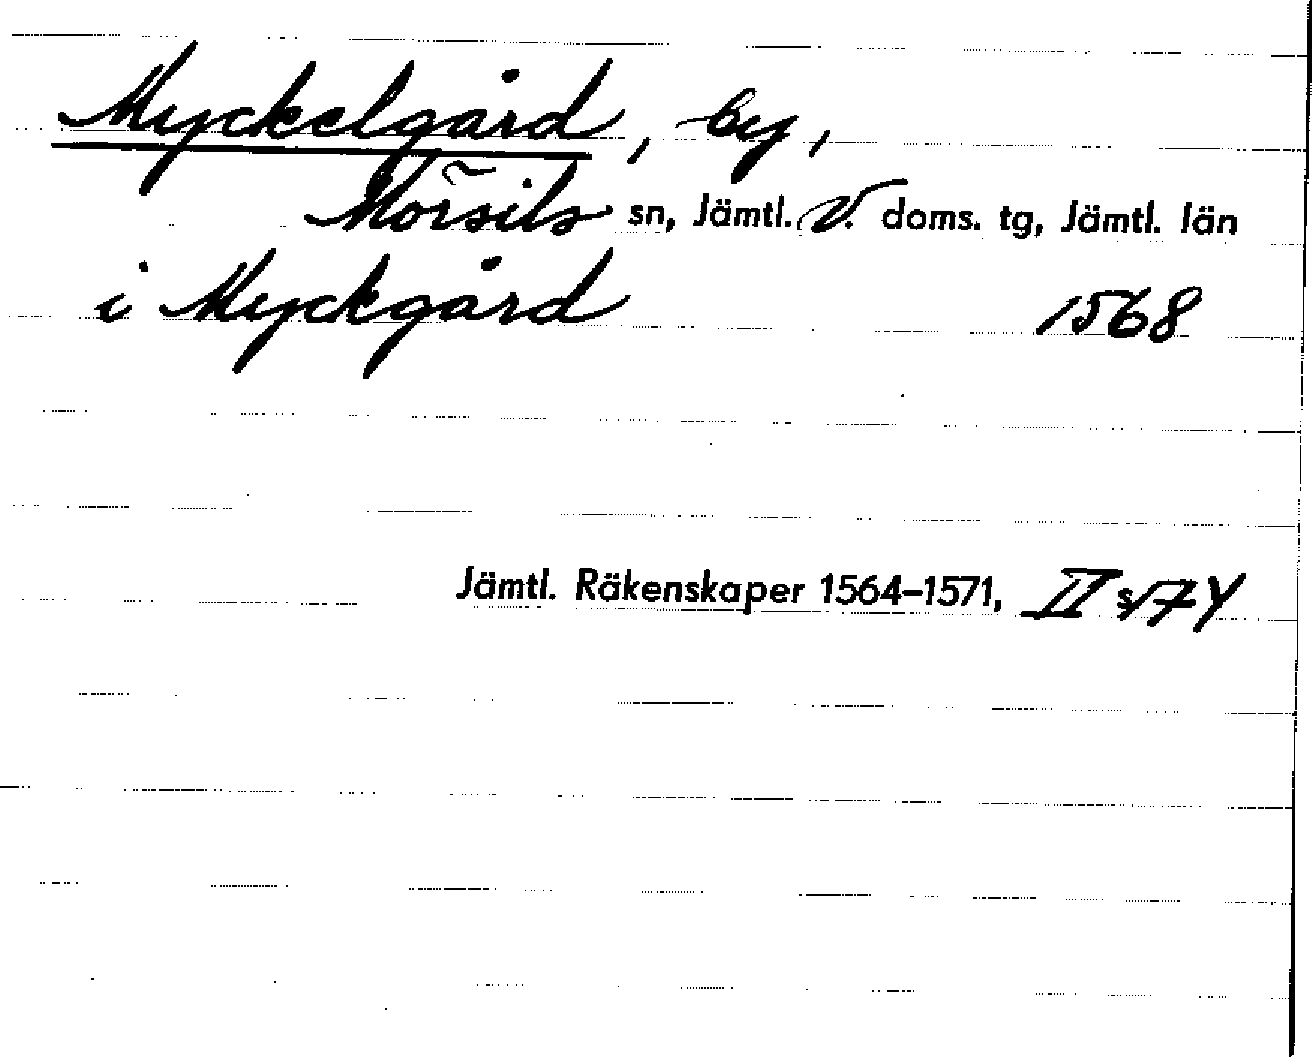 Myckelgård, by,
Mörsils sn, Jämtl. V. doms. tg, Jämtl. län
i Myckgård 1568
Jämtl. Räkenskaper 1564–1571, II s. 74